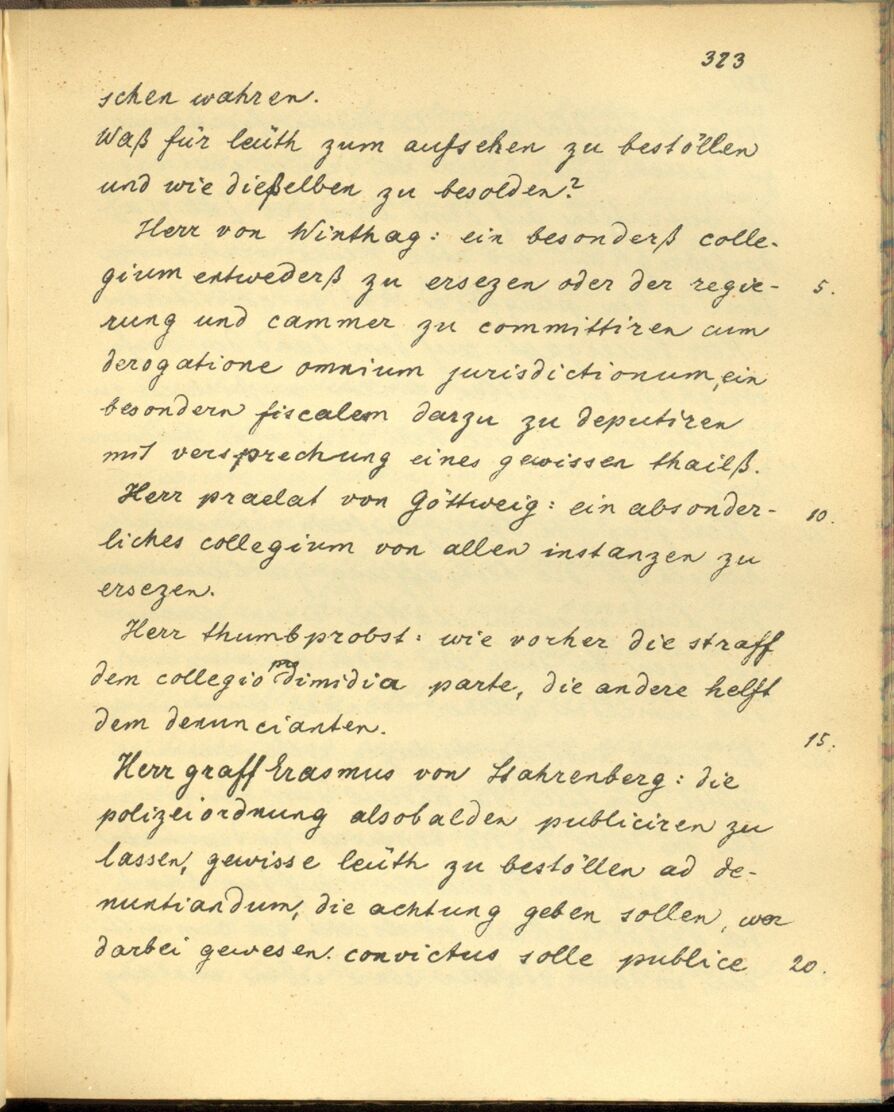 323
schen wahren.
Waß für leüth zum aufsehen zu bestöllen
und wie dießelben zu besolden?
Herr von Winthag: ein besonderß colle-
gium entwederß zu ersezen oder der regie- 5.
rung und cammer zu committiren cum
derogatione omnium jurisdictionum, ein
besondern fiscalem darzu zu deputiren
mit versprechung eines gewissen thailß.
Herr praelat von Göttweig: ein absonder- 10.
liches collegium von allen instanzen zu
ersezen.
Herr thumbprobst: wie vorher die straff
dem collegio pro dimidia parte, die andere helft
dem denuncianten. 15.
Herr graff Erasmus von Stahrenberg: die
polizeiordnung alsobalden publiciren zu
lassen, gewisse leüth zu bestöllen ad de-
nuntiandum, die achtung geben sollen, wer
darbei gewesen. convictus solle publice 20.